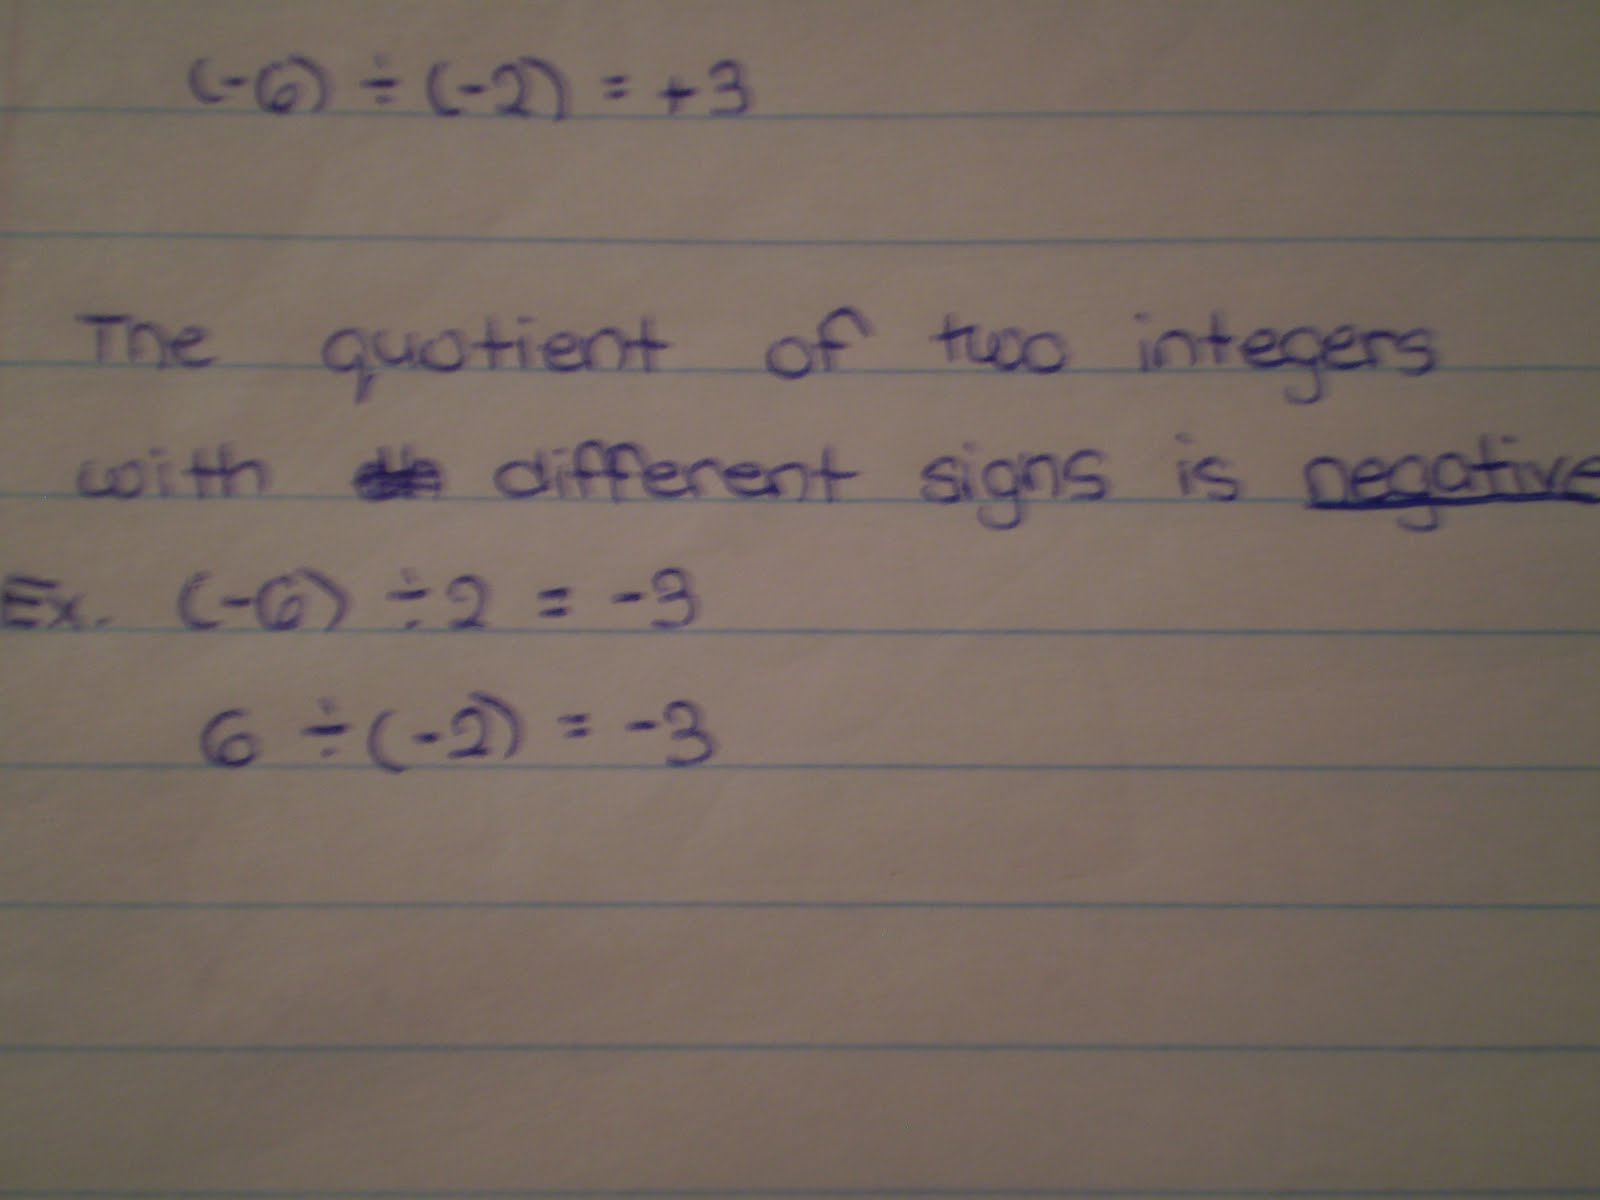 (-6) ÷ (-2) = +3
The quotient of two integers
with different signs is negative
Ex. (-6) ÷ 2 = -3
6 ÷ (-2) = -3